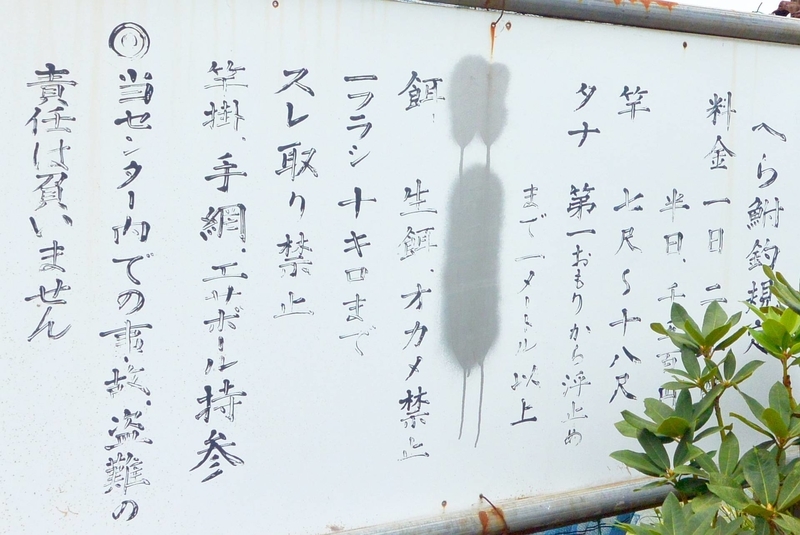 へら鮒釣規定
料金 一日、二
半日、千
竿 七尺〜十八尺
タナ 第一おもりから浮止め
まで一メートル以上
餌、生餌、オカメ禁止
一フラシ十キロまで
スレ取り禁止
竿掛、手網、エサボール持参
◎当センター内での事故、盗難の
責任は負いません